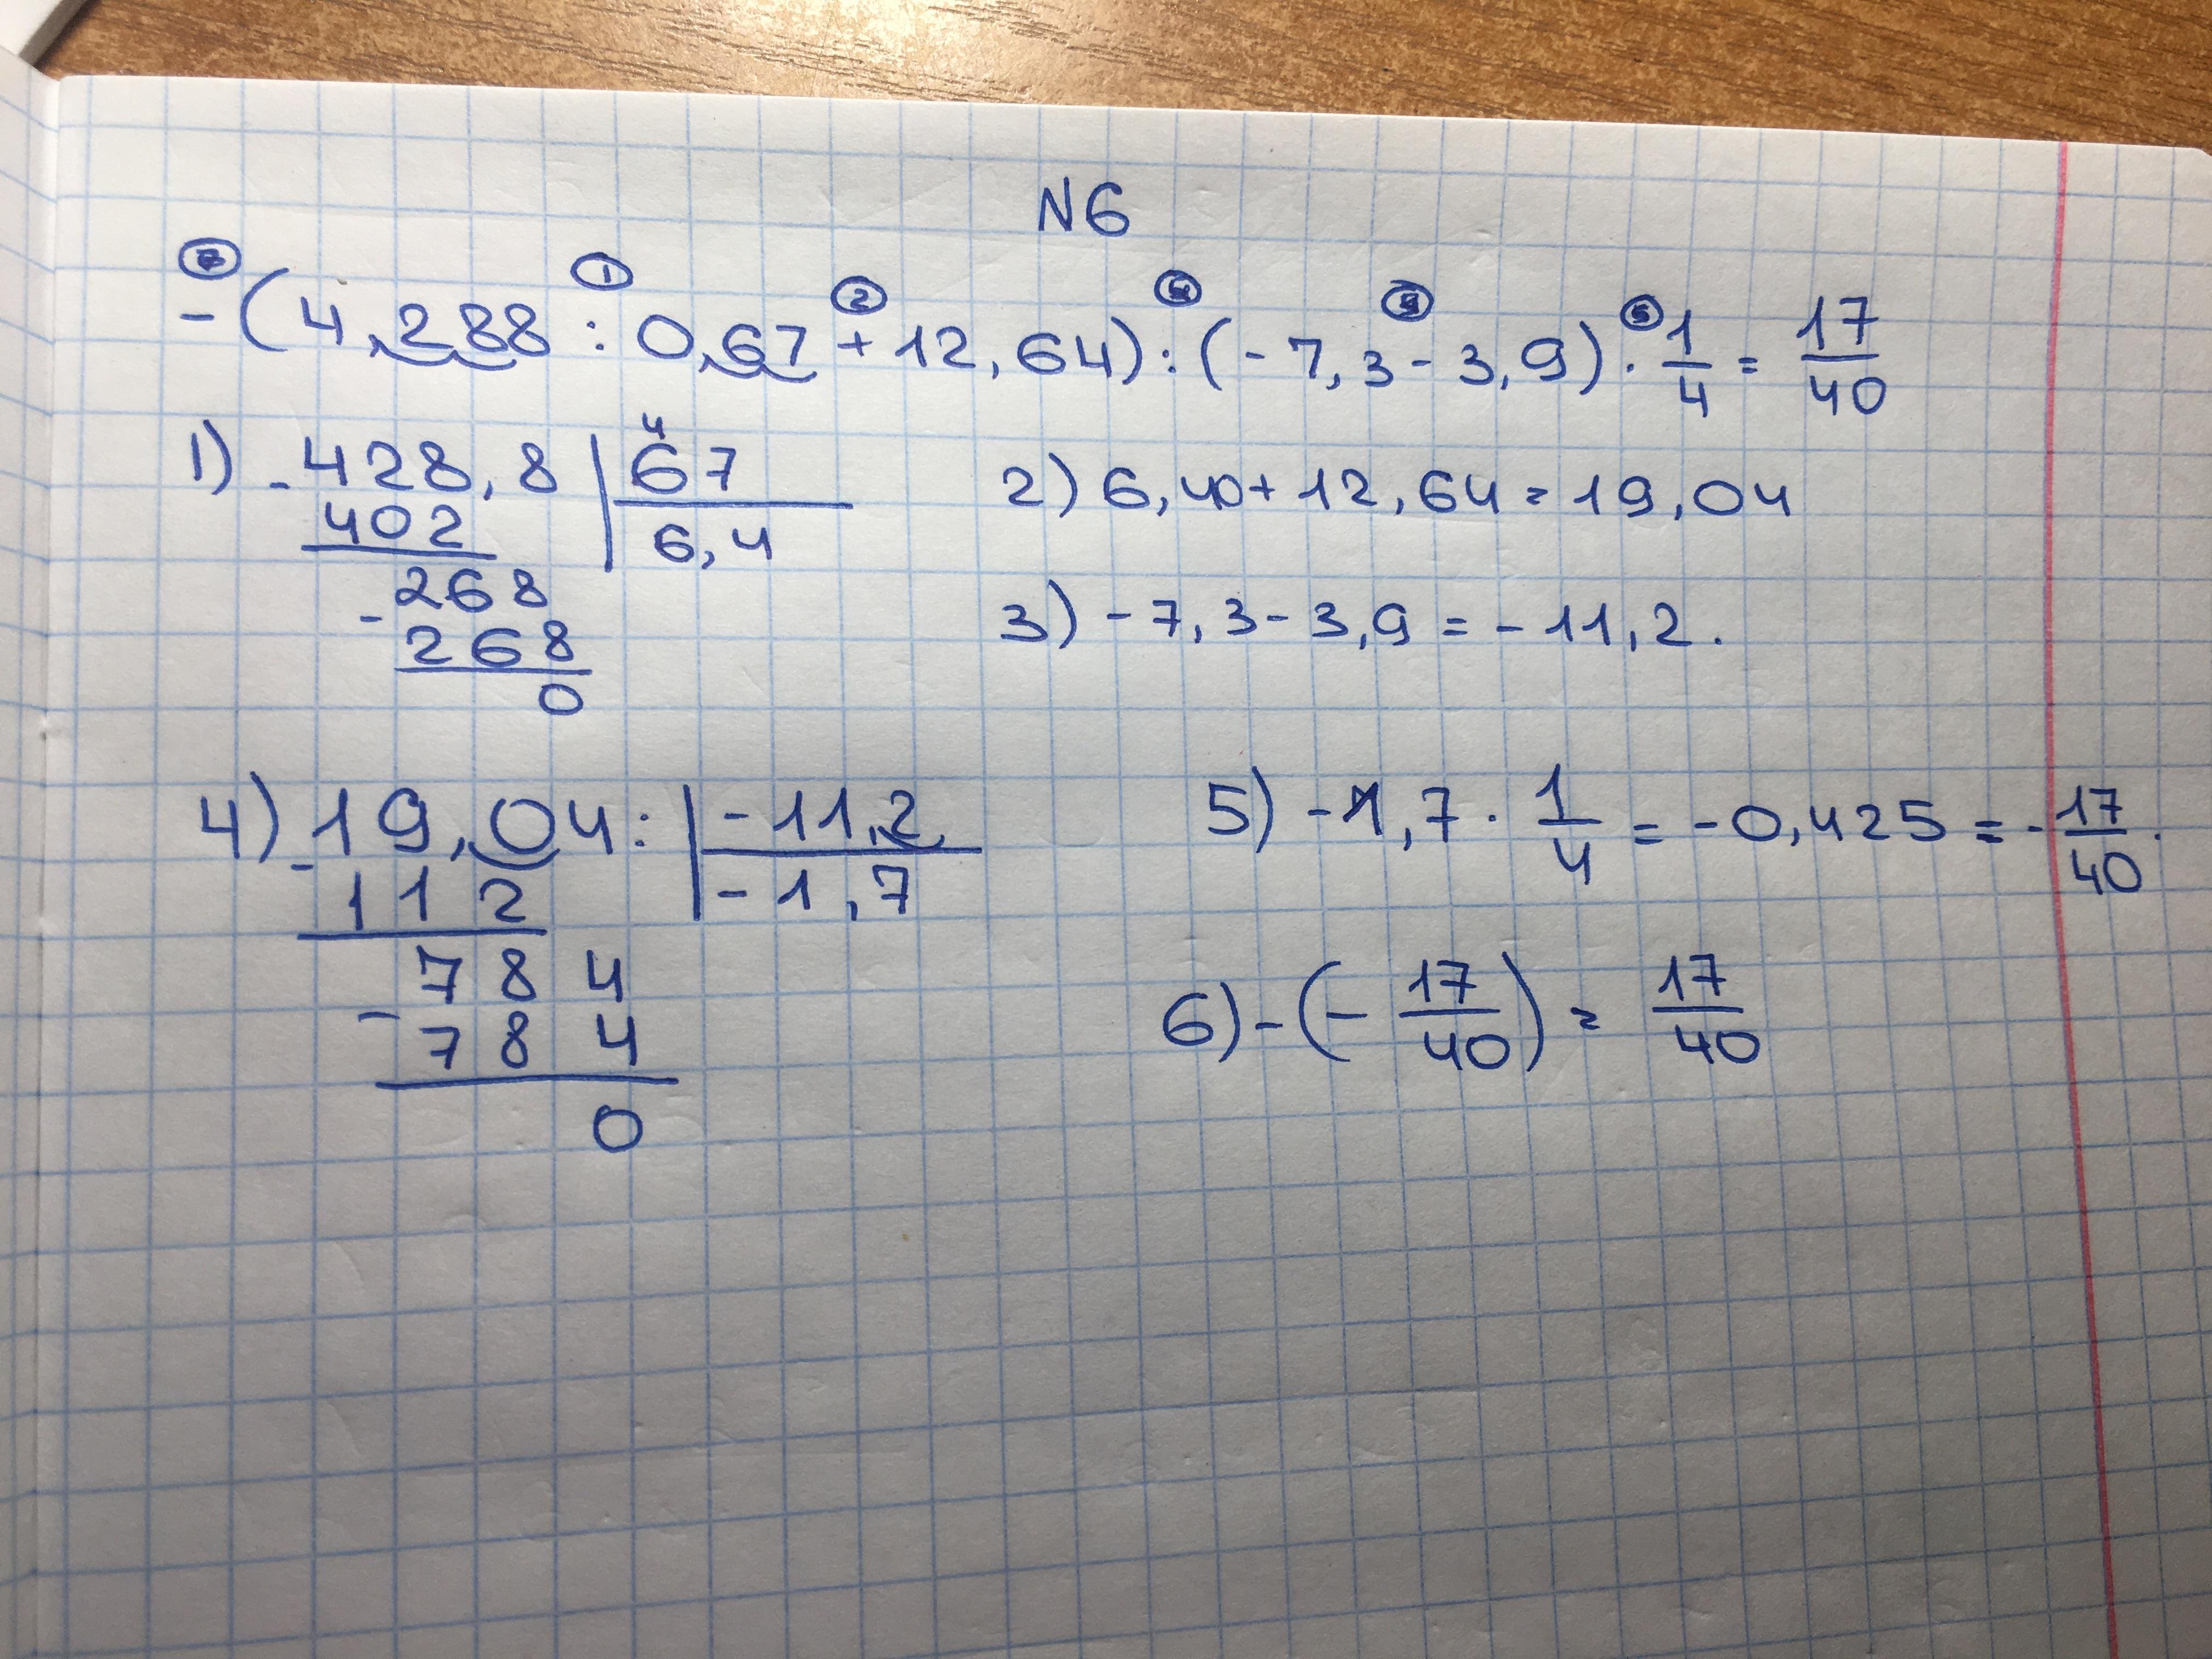 N6
6 1 2 4 3 5
-(4,288 : 0,67 + 12,64) : (-7,3 - 3,9) · 1/4 = 17/40
1) - 428,8 | 67
4
402 | 6,4
- 268
268
0
2) 6,40 + 12,64 = 19,04
3) - 7,3 - 3,9 = - 11,2.
4) - 19,04 : | -11,2
112 | -1,7
- 784
784
0
5) -1,7 · 1/4 = -0,425 = -17/40.
6) -(- 17/40) = 17/40